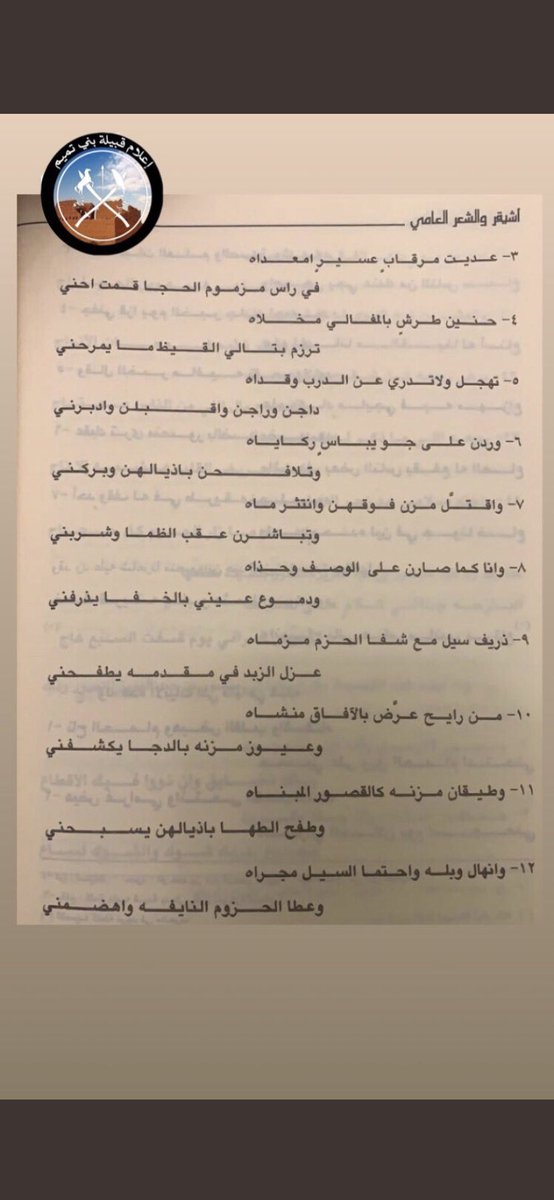 إعلام قبيلة بني تميم
اشيقر والشعر العامي
٣- عديت مرقابٍ عسيرٍ امعداه
في راس مزموم الحجا قمت احني
٤- حنين طرشٍ بالمفالي مخلاه
ترزم بتالي القيظ ما يمرحني
٥- تهجل ولاتدري عن الدرب وقداه
داجن وراجن واقبلن وادبرني
٦- وردن على جو يباسٍ ركاياه
وتلافحن باذيالهن وبركني
٧- واقتلّ مزن فوقهن وانتثر ماه
وتباشرن عقب الظما وشربني
٨- وانا كما صارن على الوصف وحذاه
ودموع عيني بالخفا يذرفني
٩- ذريف سيل مع شفا الحزم مزماه
عزل الزبد في مقدمه يطفحني
١٠- من رايح عرّض بالآفاق منشاه
وعيوز مزنه بالدجا يكشفني
١١- وطيقان مزنه كالقصور المبناه
وطفح الطها باذيالهن يسبحني
١٢- وانهال وبله واحتما السيل مجراه
وعطا الحزوم النايفه واهضمني